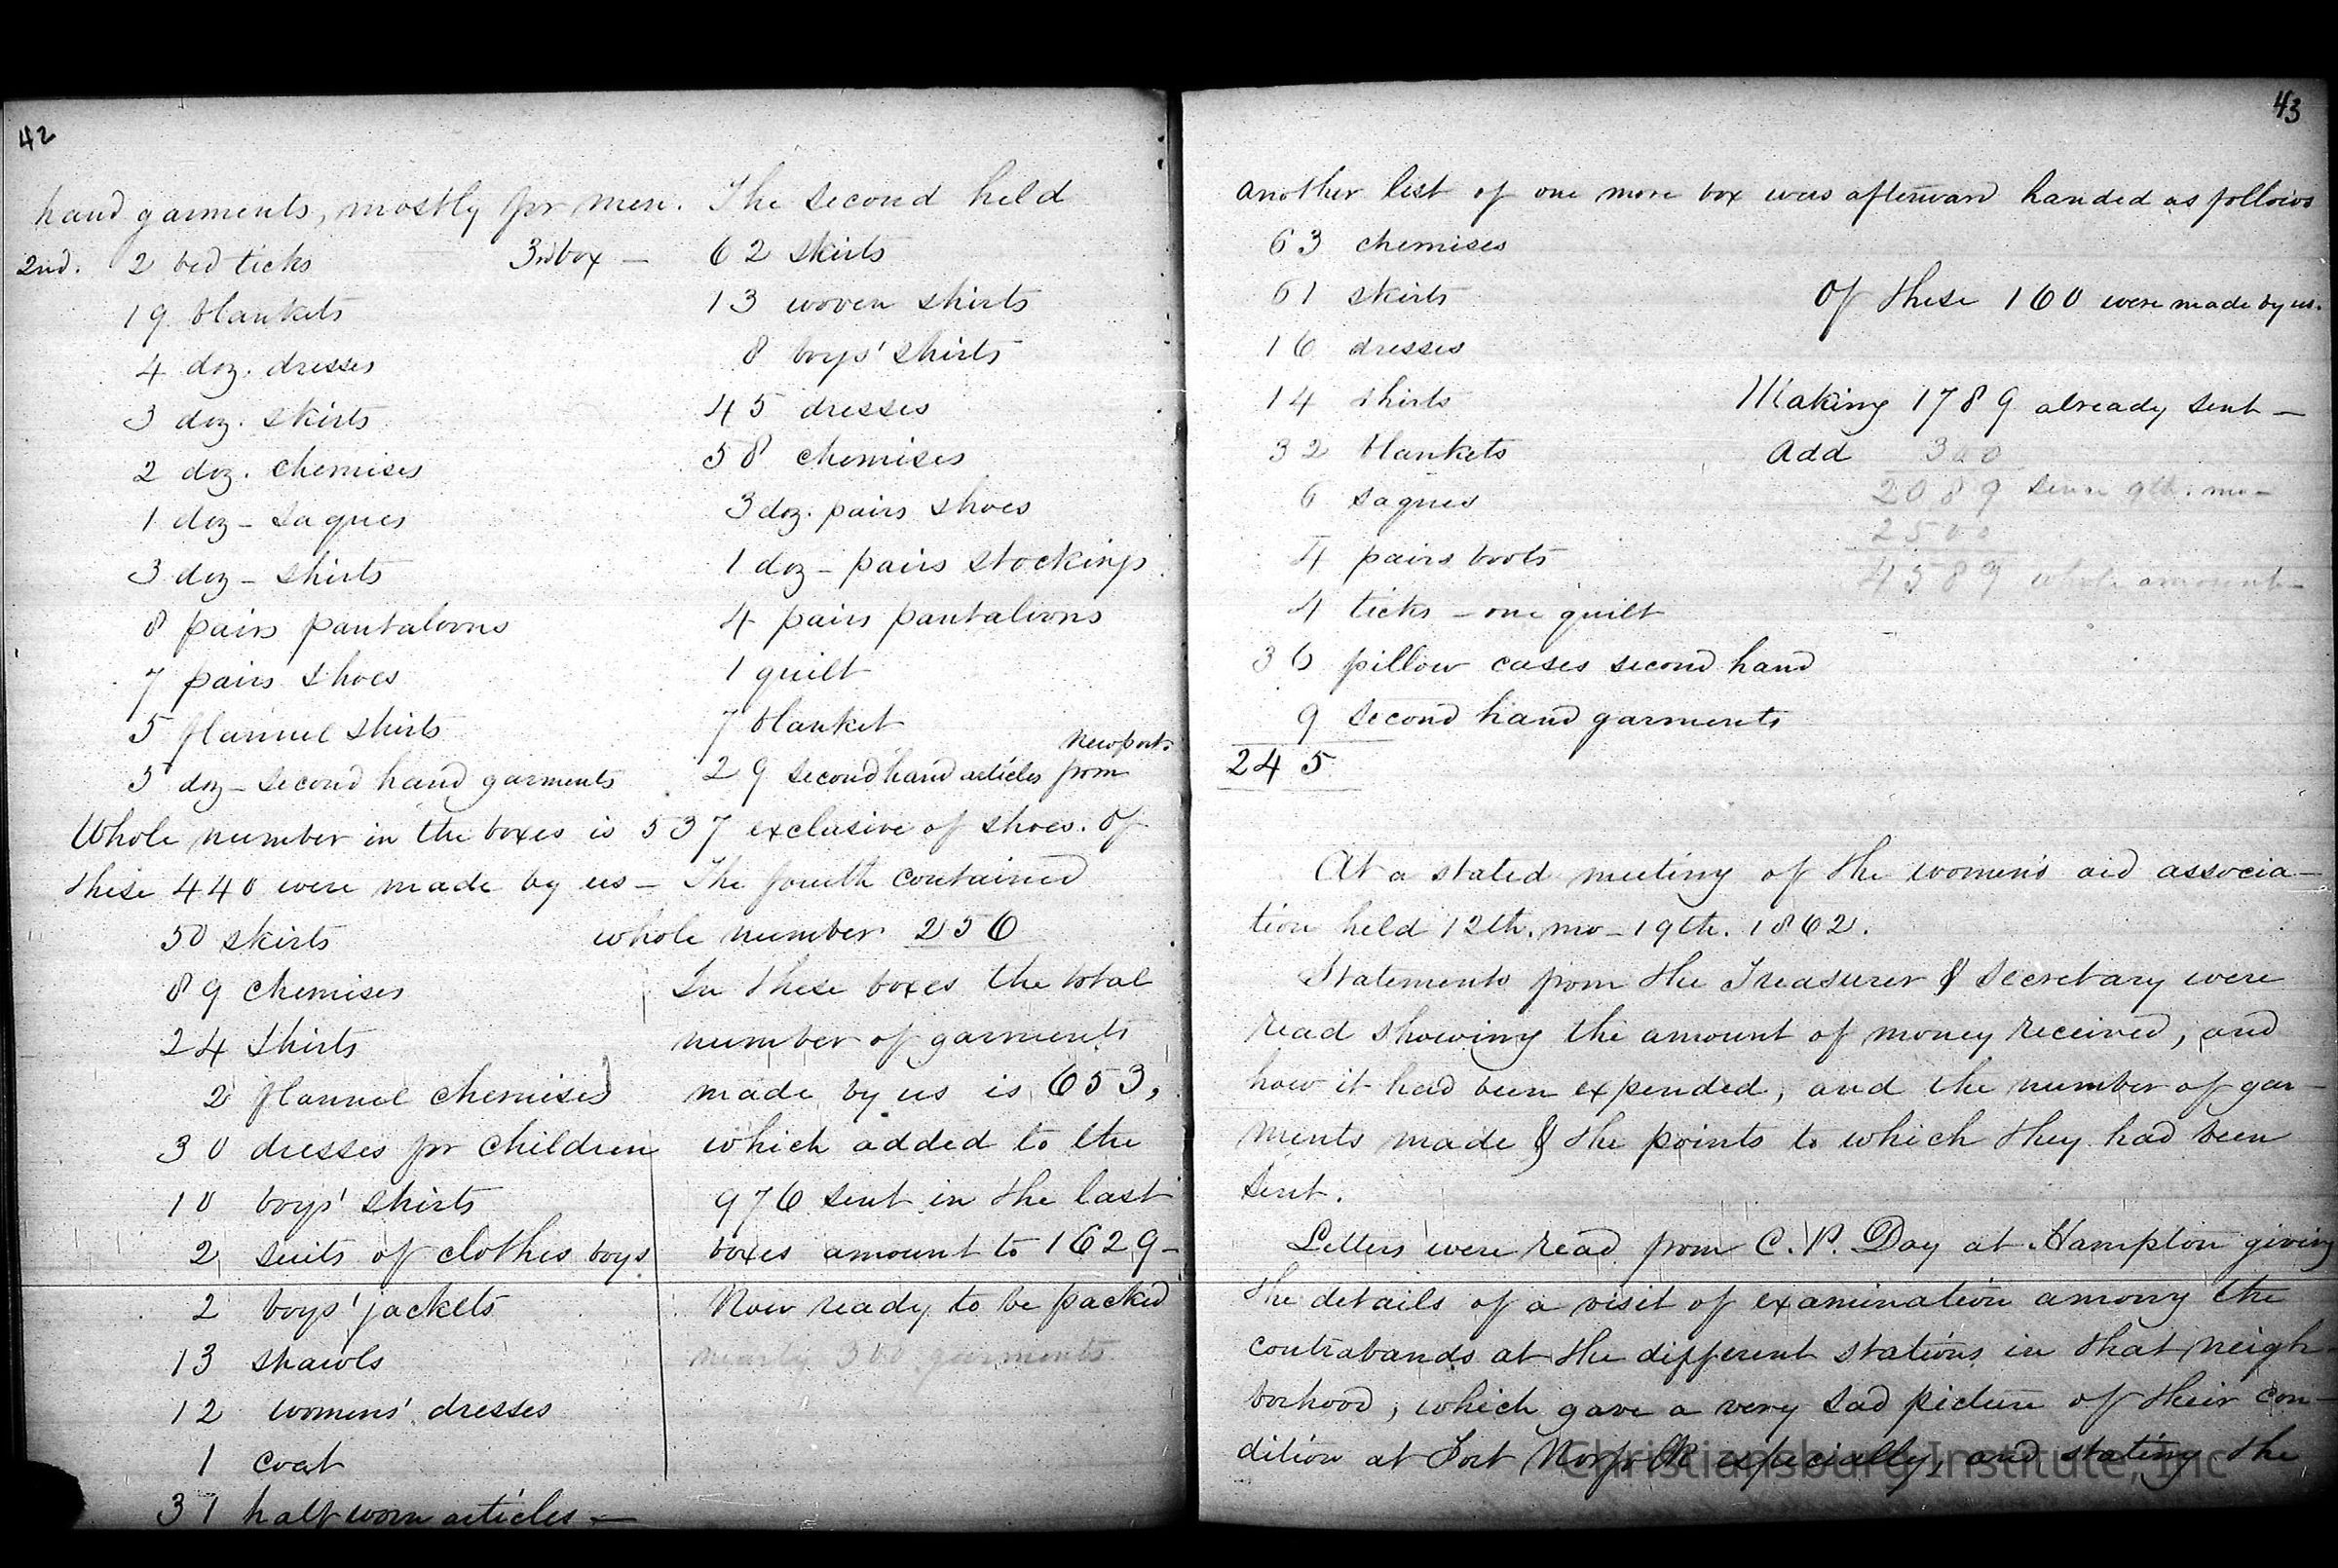 42
hand garments, mostly for men. The second held
2nd. 2 bed ticks
19 blankets
4 doz. dresses
3 doz. skirts
2 doz. chemises
1 doz - saques
3 doz - shirts
8 pairs pantaloons
7 pairs shoes
5 flannel shirts
5 doz - second hand garments
3rd box — 62 skirts
13 woven shirts
8 boys' shirts
45 dresses
58 chemises
3 doz. pairs shoes
1 doz - pairs stockings
4 pairs pantaloons
1 quilt
7 blanket
Newport
29 second hand articles from
Whole number in the boxes is 537 exclusive of shoes. Of
these 440 were made by us — The fourth contained
50 skirts
89 chemises
24 shirts
2 flannel chemises
30 dresses for children
10 boys' shirts
2 suits of clothes boys
2 boys' jackets
13 shawls
12 womens' dresses
1 coat
31 half worn articles —
whole number 256
In these boxes the total
number of garments
made by us is 653,
which added to the
976 sent in the last
boxes amount to 1629 -
Now ready to be packed
nearly 300 garments
43
another list of one more box was afterward handed as follows
63 chemises
61 skirts
16 dresses
14 shirts
32 blankets
6 saques
4 pairs boots
4 ticks - one quilt
36 pillow cases second hand
9 second hand garments
245
Of these 160 were made by us.
Making 1789 already sent —
Add 300
2089 since 9th. mo -
2500
4589 whole amount -
At a stated meeting of the women's aid associa-
tion held 12th. mo - 19th. 1862.
Statements from the Treasurer & Secretary were
read showing the amount of money received, and
how it had been expended, and the number of gar-
ments made & the points to which they had been
sent.
Letters were read from C. P. Day at Hampton giving
the details of a visit of examination among the
contrabands at the different stations in that neigh-
borhood, which gave a very sad picture of their con-
dition at Fort Norfolk especially, and stating the
Christiansburg Institute, Inc